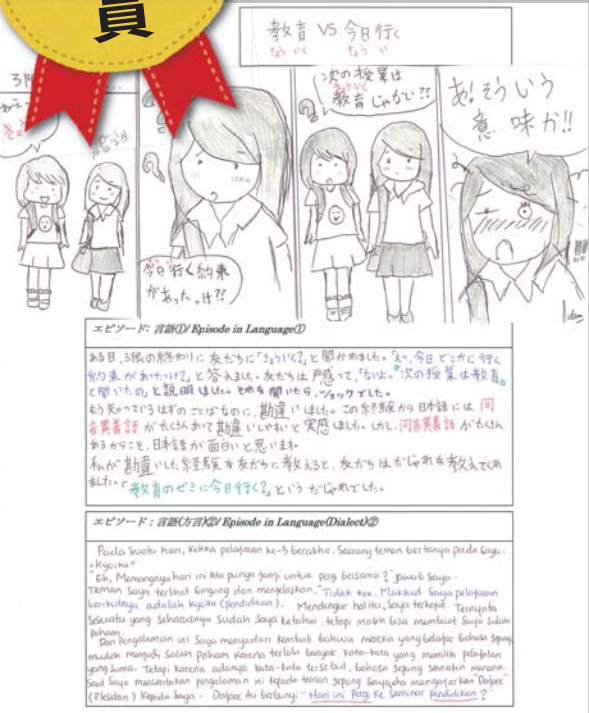 員
教育 VS 今日行く
きょういく きょう い
3限
次の授業は
教育じゃない??
きょういく
あ!そういう
意味か!!
今日行く約束
があったっけ??
エピソード: 言語①/ Episode in Language①
ある日、3限の終わりに友だちに「きょういく?」と聞かれました。「えっ、今日どこかに行く
約束があったっけ?」と答えました。友だちは戸惑って、「ないよ。“次の授業は教育”
と聞いたの」と説明しました。それを聞いたら、ショックでした。
もう知っているはずのことばなのに、勘違いしました。この経験から日本語には同
音異義語がたくさんあって勘違いしやすいと実感しました。しかし、同音異義語がたくさん
あるからこそ、日本語が面白いと思います。
私が勘違いした経験を友だちに教えると、友だちはだじゃれを教えてくれ
ました。「教育のゼミに今日行く?」というだじゃれでした。
エピソード : 言語(方言)②/ Episode in Language(Dialect)②
Pada suatu hari, ketika pelajaran ke-3 berakhir. Seorang teman bertanya pada saya.
"Kyoiku"
"Eh, Memangnya hari ini kita punya janji untuk pergi bersama?" jawab saya.
Teman saya terlihat bingung dan menjelaskan. "Tidak kok. Maksud saya pelajaran
berikutnya adalah kyoiku (pendidikan). Mendengar hal itu, saya terkejut. Ternyata
sesuatu yang seharusnya sudah saya ketahui, tetapi masih bisa membuat saya salah
paham.
Dari Pengalaman ini saya menyadari kembali bahwa mereka yang belajar bahasa Jepang
mudah menjadi salah paham karena terlalu banyak kata-kata yang memiliki pelafalan
yang sama. Tetapi karena adanya kata-kata tersebut, bahasa Jepang semakin menarik.
Saat saya menceritakan pengalaman ini kepada teman Jepang saya, dia mengajarkan "Dajare"
(Plesetan) kepada saya. Dajare itu berbunyi "Hari ini Pergi ke Seminar Pendidikan?"